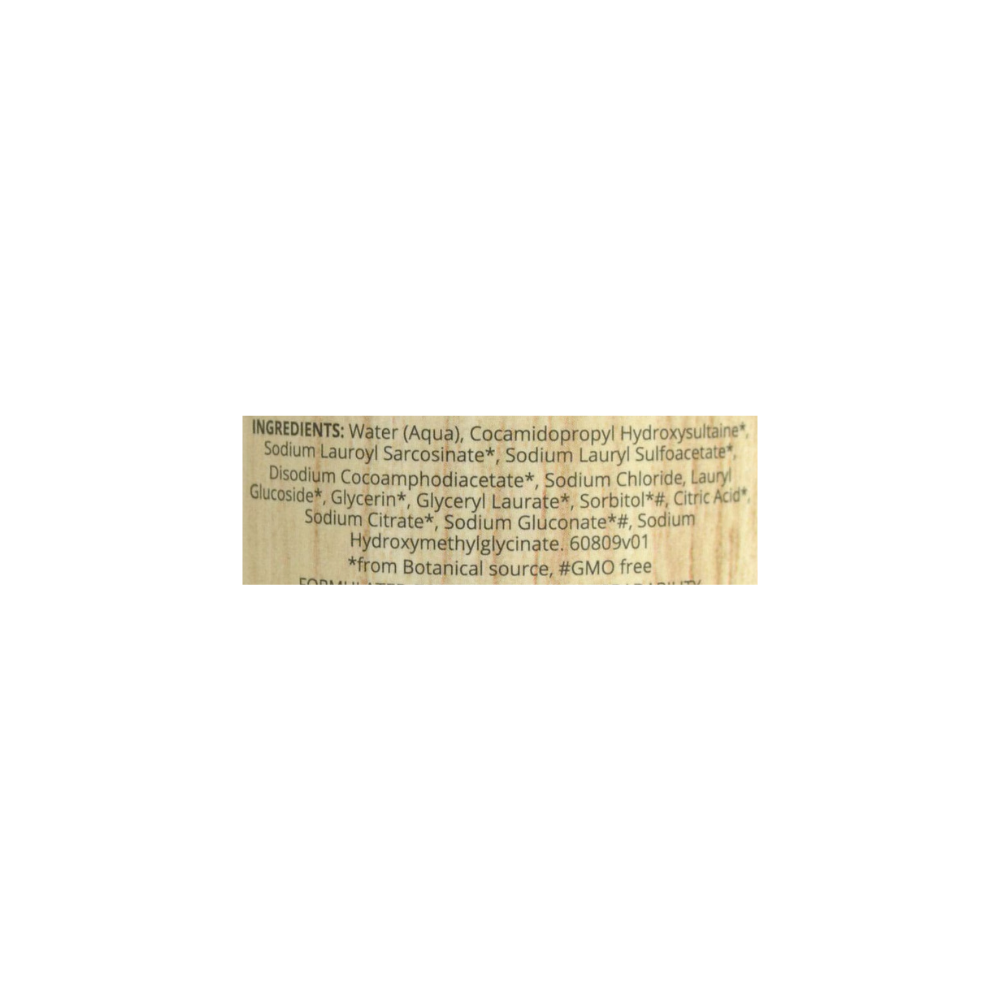 INGREDIENTS: Water (Aqua), Cocamidopropyl Hydroxysultaine*,
Sodium Lauroyl Sarcosinate*, Sodium Lauryl Sulfoacetate*,
Disodium Cocoamphodiacetate*, Sodium Chloride, Lauryl
Glucoside*, Glycerin*, Glyceryl Laurate*, Sorbitol*#, Citric Acid*,
Sodium Citrate*, Sodium Gluconate*#, Sodium
Hydroxymethylglycinate. 60809v01
*from Botanical source, #GMO free